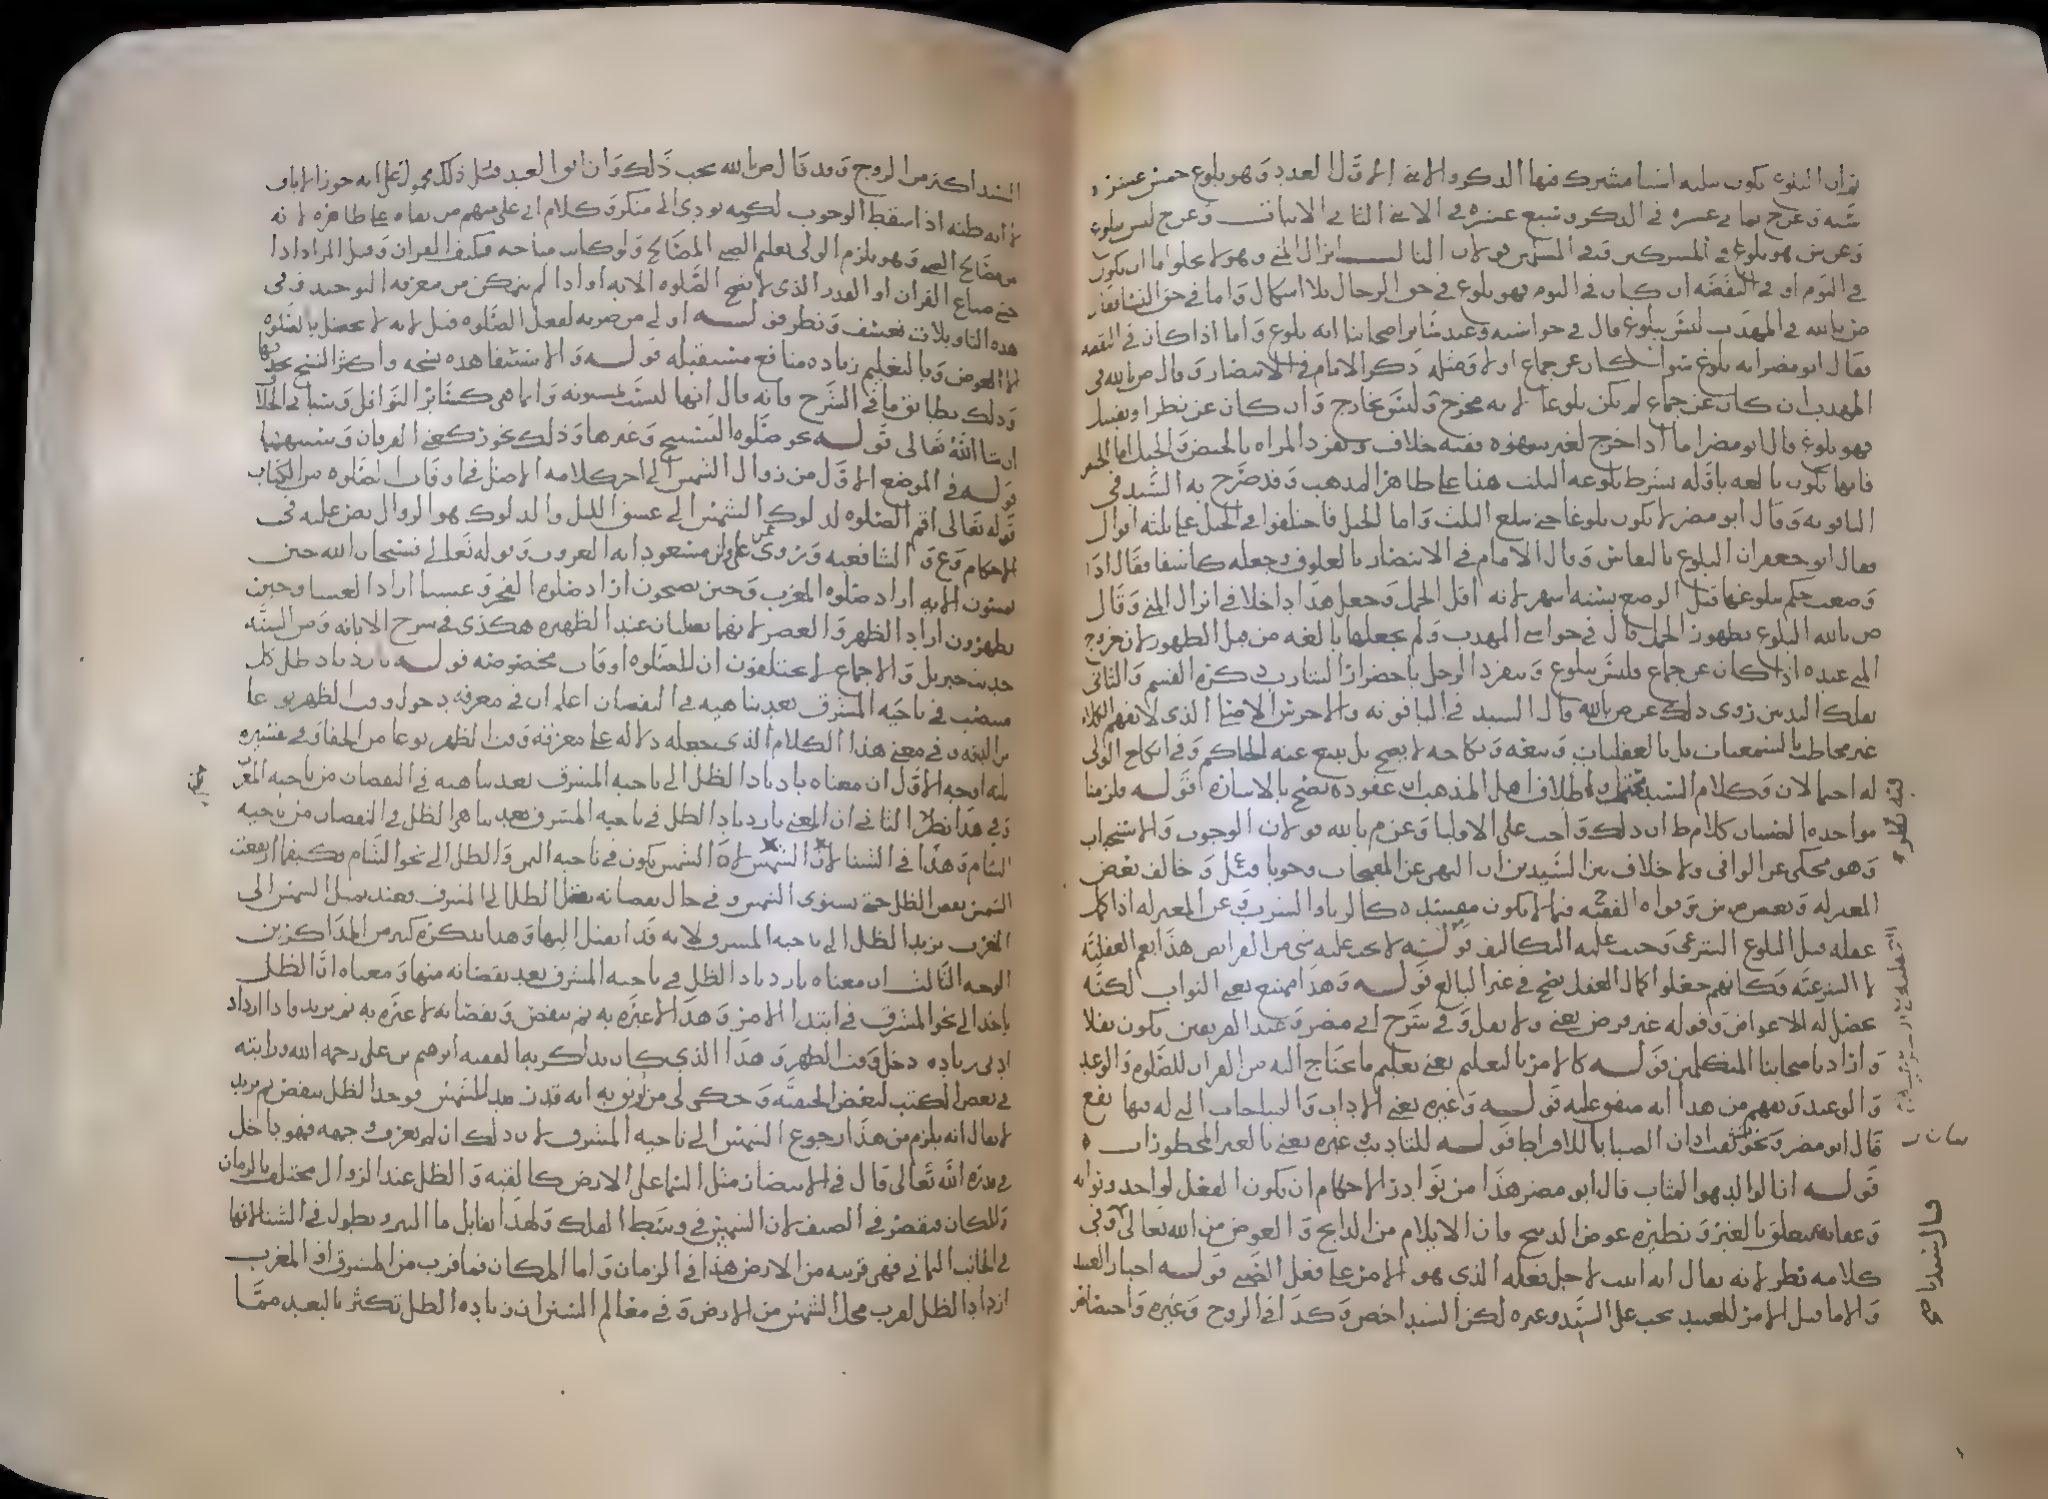 ثم ان البلوغ يكون بثلثه اشيا مشترك فيها الذكر والانثى الاول العدد وهو بلوغ خمس عشره
سنه وعن ع ثماني عشره في الذكر وسبع عشره في الانثى الثاني الانبات وعن ع ليس ببلوغ
وعن ش هو بلوغ في المشركين وفي المسلمين قولان الثالث انزال المني وهو لا يخلو اما ان يكون
في النوم او في اليقظه ان كان في النوم فهو بلوغ في حق الرجال بلا اشكال واما في حق النسا فقال
ص بالله في المهذب ليس ببلوغ قال في حواشيه وعند سائر اصحابنا انه بلوغ واما اذا كان في اليقظه
فقال ابو مضر انه بلوغ سوا كان عن جماع او لا ومثله ذكر الامام في الانتصار وقال ص بالله في
المهذب ان كان عن جماع لم يكن بلوغا لانه مخرج وليس بخارج وان كان عن نظر او تقبيل
فهو بلوغ قال ابو مضر اما اذا خرج لغير شهوه ففيه خلاف وتنفرد المراه بالحيض والحبل اما الحيض
فانها تكون بالغه باقله بشرط بلوغه الثلث هنا على ظاهر المذهب وقد صرح به السيد في
الياقوته وقال ابو مضر لا يكون بلوغا حتى يبلغ الثلث واما الحبل فاختلفوا في الحبل على ثلثه اقوال
فقال ابو جعفر ان البلوغ بالنفاس وقال الامام في الانتصار بالعلوق وجعله كاشفا فقال اذا
وضعت حكم ببلوغها قبل الوضع بسته اشهر لانه اقل الحمل وجعل هذا داخلا في انزال المني وقال
ص بالله البلوغ بظهور الحمل قال في حواشي المهذب ولم يجعلها بالغه من قبل الظهور لان خروج
المني عنده اذا كان عن جماع فليس ببلوغ وينفرد الرجل باخضرار الشارب ذكره القسم والثاني
تفلك الثديين روى ذلك عن ص بالله قال السيد في الياقوته والاخرس الاصم الذي لا يفهم الكلام
غير مخاطب بالسمعيات بل بالعقليات وبيعه ونكاحه لا يصح بل يبيع عنه الحاكم وفي انكاح الولي
له احتمالان وكلام السيد محتمل واطلاق اهل المذهب ان عقوده تصح بالاشاره قوله ويلزمنا
مواخذه الصبيان كلام ط ان ذلك واجب على الاوليا وعن م بالله قولان الوجوب والاستحباب
وهو محكي عن الوافي ولا خلاف بين السيدين ان النهي عن القبيحات وجوبا وقيل وخالف بعض
المعتزله وبعض
عقله قبل البلوغ الشرعي وجبت عليه التكاليف قوله لا يجب عليه شي من الفرائض هذا يعم العقليه
لا الشرعيه فكانهم جعلوا كمال العقل يصح في غير البالغ قوله وهذا ممتنع يعني الثواب لكنه
عضل له الاعواض وقوله غير فرض يعني ولا نفل وفي شرح ابي مضر وعند الفريقين يكون نفلا
واراد باصحابنا المتكلمين قوله كالامر بالتعليم يعني تعليم ما يحتاج اليه من القران للصلوه والوعد
والوعيد ويفهم من هذا انه متفق عليه قوله وغيره يعني الاداب والمباحات التي له فيها نفع
قال ابو مضر ونحو ثقب اذان الصبايا للاقراط قوله للتاديب وغيره يعني بالغير المحظورات
قوله انا لوالد هو المثاب قال ابو مضر هذا من نوادر الاحكام ان يكون الفعل لواحد وثوابه
وعقابه متعلق بالغير ونظيره عوض الذبيح فان الايلام من الذابح والعوض من الله تعالى وفي
كلامه نظر لانه يقال انه اثيب لاجل فعله الذي هو الامر على فعل الصبي قوله اجبار العبيد
والاما قيل الامر للعبيد يجب على السيد وغيره لكن السيد اخص وكذا في الزوج وغيره واختصاص
فيه نظر
بيان ر
السيد اكثر من الزوج وقد قال ص بالله يجب ذلك وان ابق العبد وقيل ذلك محمول على انه جوز الاباق
لا انه ظنه اذ اسقط الوجوب لكونه يودي الى منكر وكلام ابي علي منهم من بقاه على ظاهره لانه
من مصالح الصبي وهو يلزم الولي تعليم الصبي المصالح ولو كانت مباحه فكيف القران وقيل المراد اذا
خشي ضياع القران او القدر الذي لا تصح الصلوه الا به او اذا لم يتمكن من معرفه التوحيد وفي
هذه التاويلات تعسف ونظر قوله اولى من ضربه لفعل الصلوه قيل لانه لا يحصل بالصلوه
الا العوض وبالتعليم زياده منافع مستقبله قوله والاستسقا هذه نسخه واكثر النسخ بحذفها
وذلك يطابق ما في الشرح فانه قال انها ليست بمسنونه وانما هي كسائر النوافل وسياتي الخلاف
ان شا الله تعالى قوله نحو صلوه التسبيح وغيرها وذلك نحو ركعتي الفرقان وشبيهها
قوله في الموضع الاول من زوال الشمس الى اخر كلامه الاصل في اوقات الصلوه من الكتاب
قوله تعالى اقم الصلوه لدلوك الشمس الى غسق الليل والدلوك هو الزوال نص عليه في
الاحكام وع و الشافعيه وروي عن علي وابن مسعود انه الغروب وقوله تعالى فسبحان الله حين
تمسون الايه اراد صلوه المغرب وحين تصبحون اراد صلوه الفجر وعشيا اراد العشا وحين
تظهرون اراد الظهر والعصر لانهما يصليان عند الظهيره هكذى في شرح الابانه ومن السنه
حديث جبريل والاجماع لا يختلفون ان للصلوه اوقات مخصوصه قوله بازدياد ظل كل
منتصب في ناحيه المشرق بعد تناهيه في النقصان اعلم ان في معرفه دخول وقت الظهر نوعا
من الدقه وفي معنى هذا الكلام الذي يجعله دلاله على معرفه وقت الظهر نوعا من الخفا وفي تفسيره
ثلثه اوجه الاول ان معناه بازدياد الظل الى ناحيه المشرق بعد تناهيه في النقصان من ناحيه المغرب
وفي هذا نظر الثاني ان المعنى بازدياد الظل في ناحيه المشرق بعد تناهي الظل في النقصان من ناحيه
الشام وهذا في الشتا لان الشمس تكون في ناحيه اليمن والظل الى نحو الشام فكيفما ارتفعت
الشمس نقص الظل حتى تستوي الشمس وفي حال نقصانه يتنقل الظل الى المشرق فعند ميل الشمس الى
المغرب يزيد الظل الى ناحيه المشرق لانه قد انتقل اليها وهذا يذكره كثير من المذاكرين
الوجه الثالث ان معناه بازدياد الظل في ناحيه المشرق بعد نقصانه منها ومعناه ان الظل
ياخذ الى نحو المشرق في ابتدا الامر وهذا لا عبره به ثم ينقص ونقصانه لا عبره به ثم يزيد فاذا ازداد
ادنى زياده دخل وقت الظهر وهذا الذي كان يذاكر به الفقيه ابرهيم بن علي رحمه الله ورايته
في بعض الكتب لبعض الحنفيه وحكى لي من اوثق به انه قدر هذا للشمس فوجد الظل ينقص ثم يزيد
لا يقال انه يلزم من هذا رجوع الشمس الى ناحيه المشرق لان ذلك ان لم يعرف وجهه فهو داخل
في قدره الله تعالى قال في الانتصار مثل السما على الارض كالقبه والظل عند الزوال مختلف بالزمان
والمكان فيقصر في الصيف لان الشمس في وسط الفلك ولهذا يقابل ما البير ويطول في الشتا لانها
في الجانب اليماني فهي قريبه من الارض هذا في الزمان واما المكان فما قرب من المشرق او المغرب
ازداد الظل لقرب محل الشمس من الارض وفي معالم السنن ان زياده الظل تكثر بالبعد عما